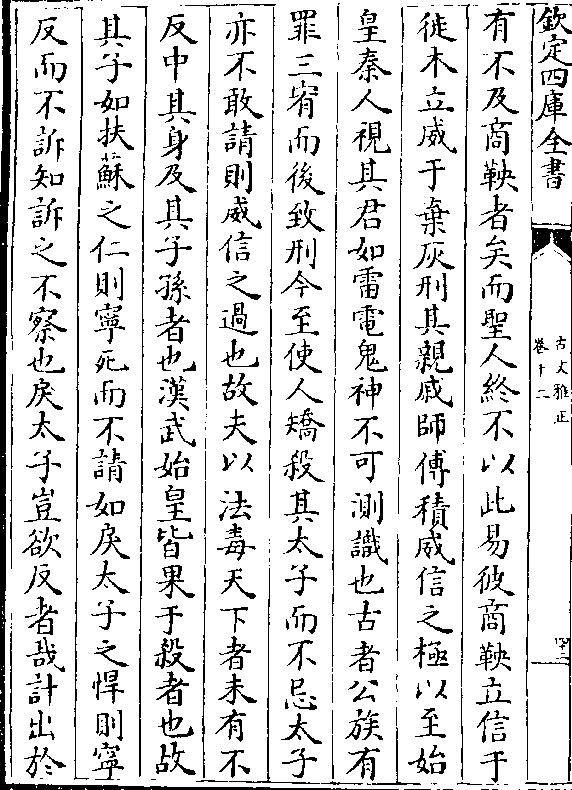 欽定四庫全書
古文雅正
卷十二
有不及商鞅者矣而聖人終不以此易彼商鞅立信于
徙木立威于棄灰刑其親戚師傅積威信之極以至始
皇秦人視其君如雷電鬼神不可測識也古者公族有
罪三宥而後致刑今至使人矯殺其太子而不忌太子
亦不敢請則威信之過也故夫以法毒天下者未有不
反中其身及其子孫者也漢武始皇皆果于殺者也故
其子如扶蘇之仁則寧死而不請如戾太子之悍則寧
反而不訴知訴之不察也戾太子豈欲反者哉計出於